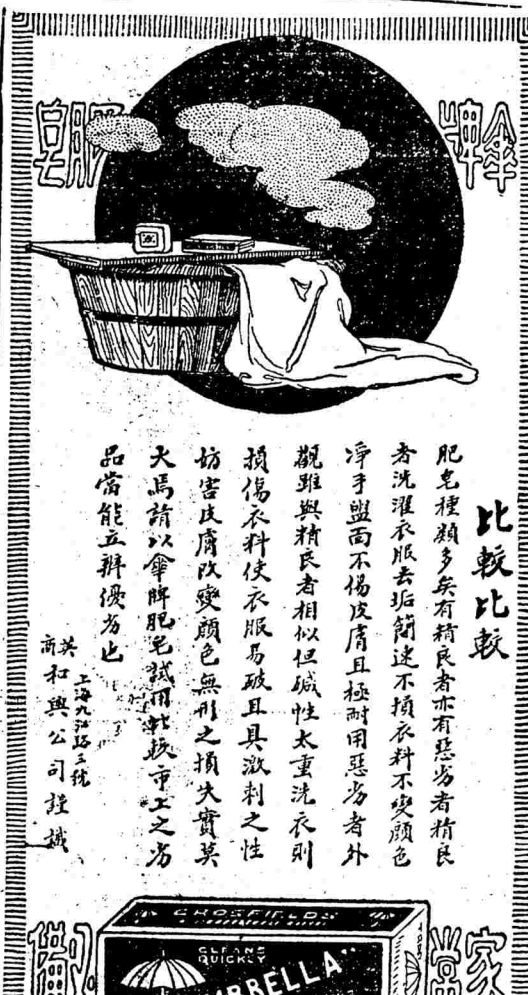 傘牌
肥皂
比較比較
肥皂種類多矣有精良者亦有惡劣者精良
者洗濯衣服去垢簡速不損衣料不變顏色
淨手盥面不傷皮膚且極耐用惡劣者外
觀雖與精良者相似但碱性太重洗衣則
損傷衣料使衣服易破且具激刺之性
妨害皮膚改變顏色無形之損失實莫
大焉請以傘牌肥皂試用較市上之劣
品當能立辨優劣也
上海九江路三號
英商和興公司謹識
家常
必備
CROSFIELD'S
CLEANS
QUICKLY
UMBRELLA"